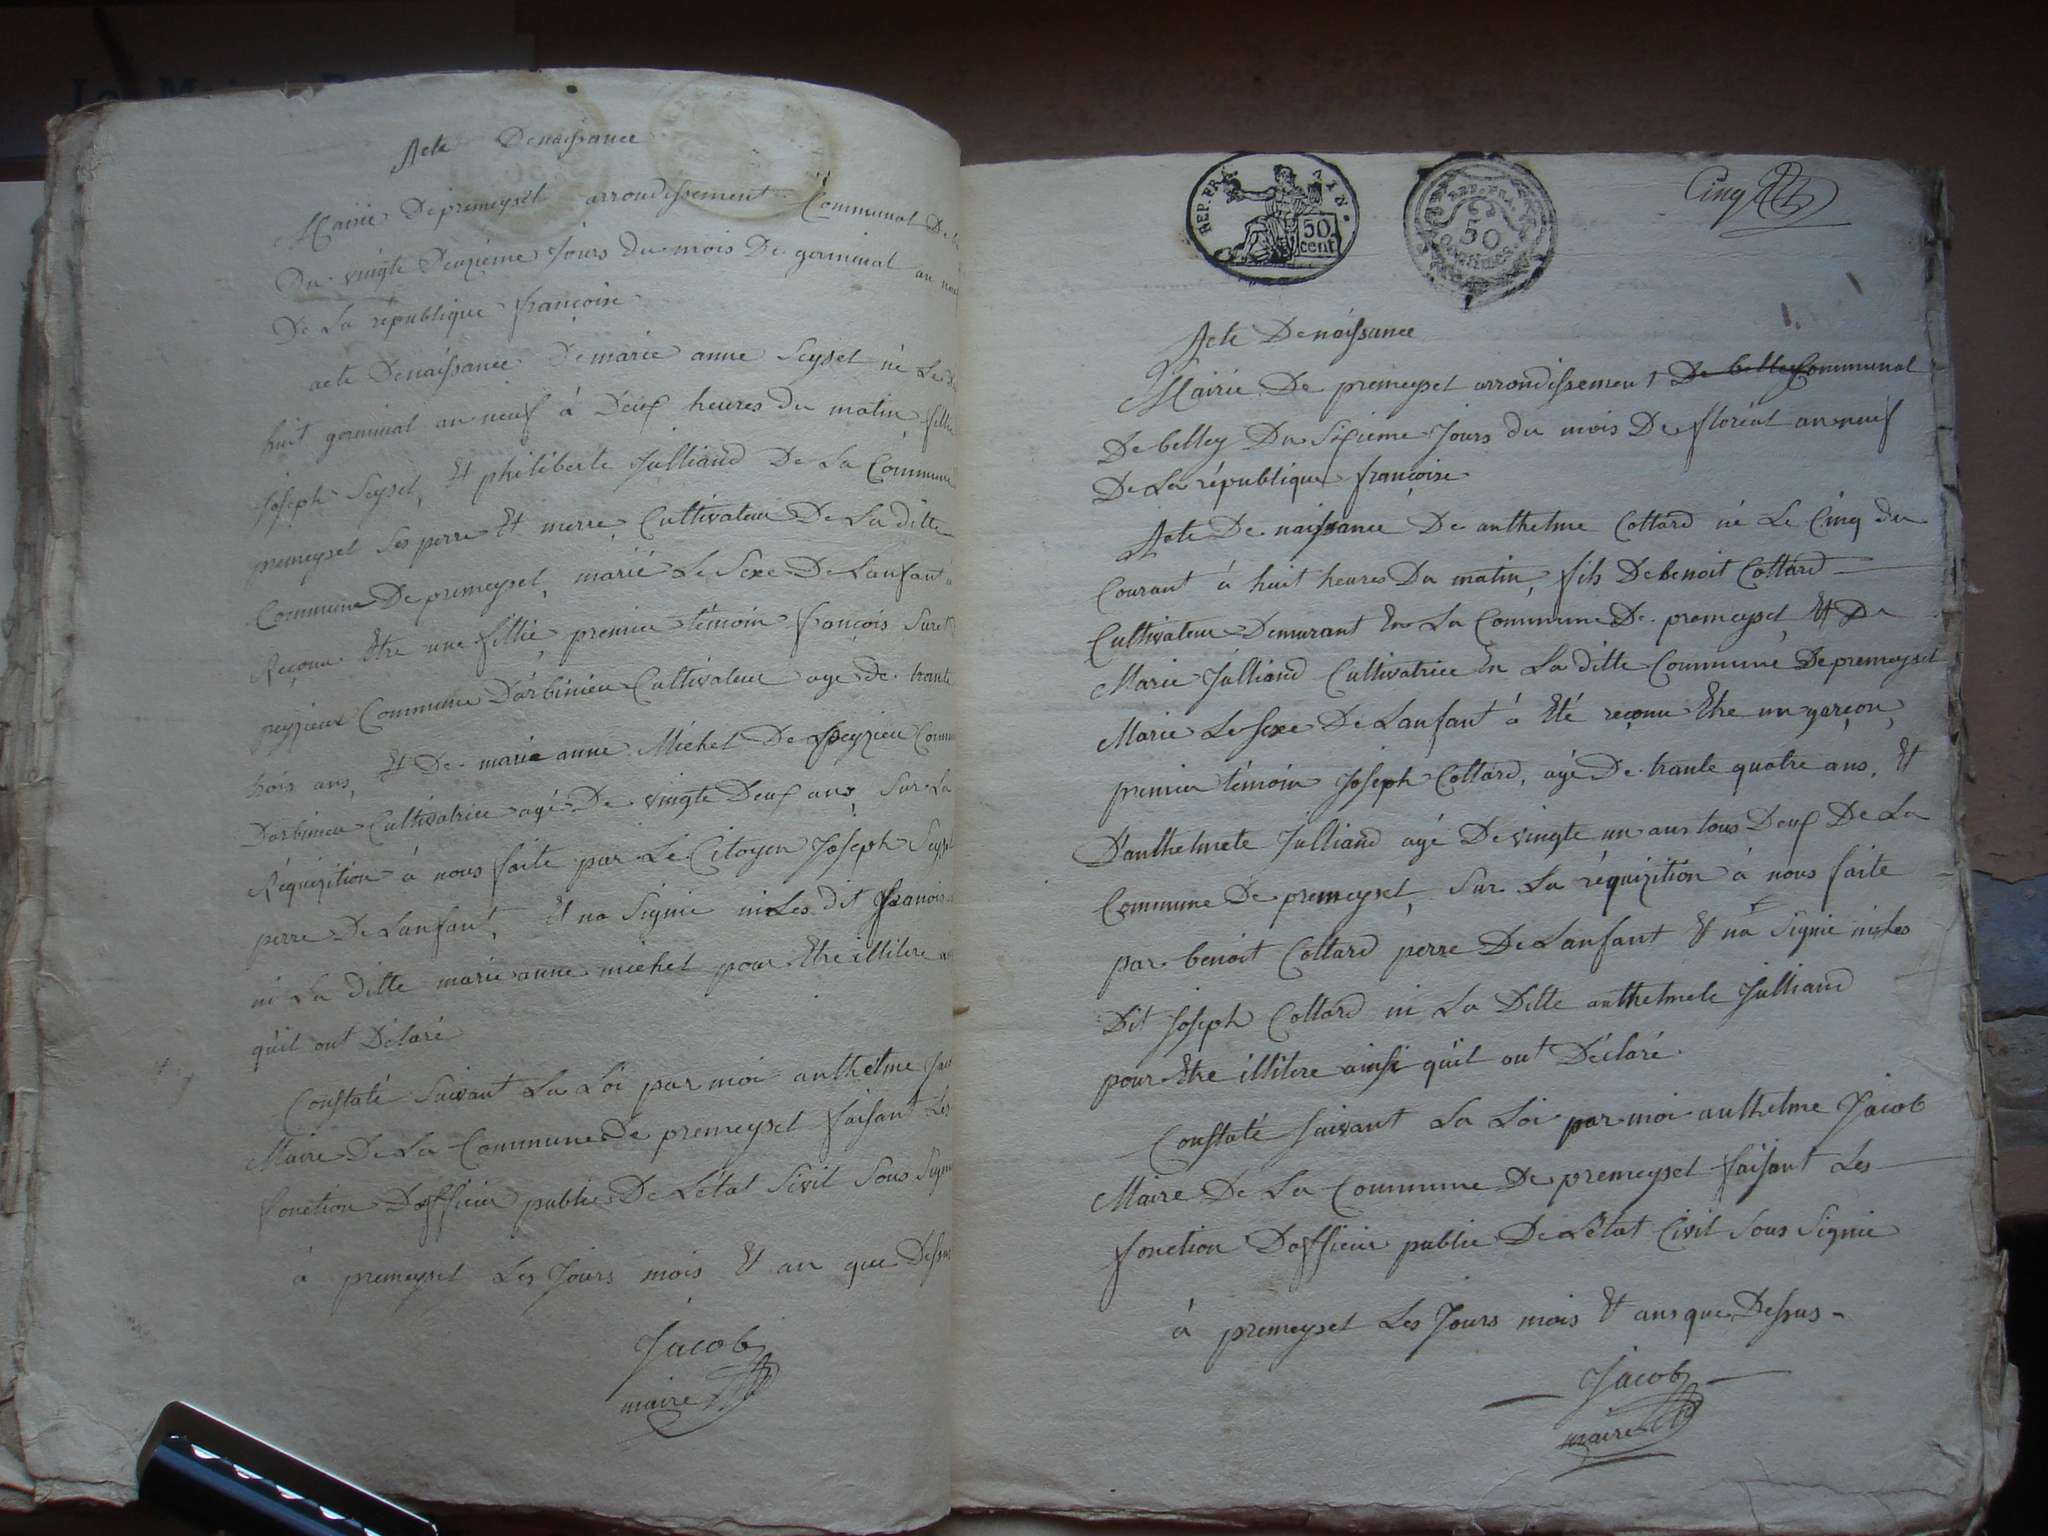 Acte Denaissance
Mairie Depremeysel arrondissement Communal De
Du vingte Deuxième Jours du mois De germinal an
De La république françoise
acte Denaissance Demarie anne Seysel né Le
huit germinal an neuf à Deux heures du matin fillie
Joseph Seysel, Et philiberte Julliand De La Commune
premeysel Ses perre Et merre Cultivateur De La ditte
Commune De premeysel, marié Le Sexe De Lanfant
Reconu Etre une fillie, premier témoin françois Suret
peyzieux Commune D'arbinieu Cultivateur age de trante
trois ans, Et De marie anne Michel De Peyzieu Comm
Darbinieu Cultivatrice agé De vingte Deux ans, Sur La
Réquizition à nous faite par Le Citoyen Joseph Seysel
perre De Lanfant, Et na Signie ni Les dit franois
ni La ditte marie anne michel pour Etre illitere
quil ont Déclaré
Constaté Suivant La Loi par moi anthelme Jac
Maire De La Commune De premeysel faisant Les
fonction Dofficier public De Létat Sivil Sous Signi
à premeysel Les Jours mois Et an que Dessus
Jacob
maire
REP. FRA. 7 I N 8.
50 cent.
REP. FRA.
50
Centimes
Cinq
Acte Denaissance
Mairie De premeysel arrondissement De belley Communal
De belley Du Sixieme Jours du mois De floréal an neuf
De La république françoise
Acte De naissance De anthelme Collard né Le Cinq du
Courant à huit heures Du matin, fils De benoit Collard
Cultivateur Demurant En La Commune De premeysel, Et De
Marie Julliand Cultivatrice En La ditte Commune De premeysel
Marié Le Sexe De Lanfant à Eté reconu Etre un garçon,
premier témoin Joseph Collard, agé De trante quatre ans, Et
D'anthelmete Julliand agé De vingte un ans tous Deux De La
Commune De premeysel, Sur La réquizition à nous faite
par benoit Collard perre De Lanfant Et na Signie ni Les
Dit Joseph Collard ni La Ditte anthelmete Julliand
pour Etre illitere ainsi quil ont Déclaré.
Constaté Suivant La Loi par moi anthelme Jacob
Maire De La Commune De premeysel faisant Les
fonction Dofficier public De Létat Civil Sous Signie
à premeysel Les Jours mois Et ans que Dessus
Jacob
maire